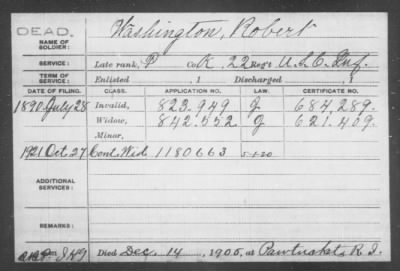 DEAD.
NAME OF SOLDIER: Washington, Robert
SERVICE: Late rank, P Co. K, 22 Reg't U.S.C. Inf.
TERM OF SERVICE: Enlisted , 1 Discharged , 1
DATE OF FILING. CLASS. APPLICATION NO. LAW. CERTIFICATE NO.
1890 July 28 Invalid, 823.949 J 684.289.
Widow, 842.552 J 621.409.
Minor,
1921 Oct 27 Cont Wid 1180663 5-1-20
ADDITIONAL SERVICES:
REMARKS:
Died Dec. 14, 1905, at Pawtucket, R.I.